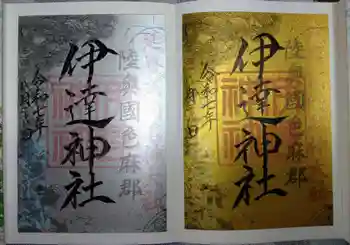 陸奥國色麻郡
伊達神社
令和七年
陸奥國色麻郡
伊達神社
令和七年